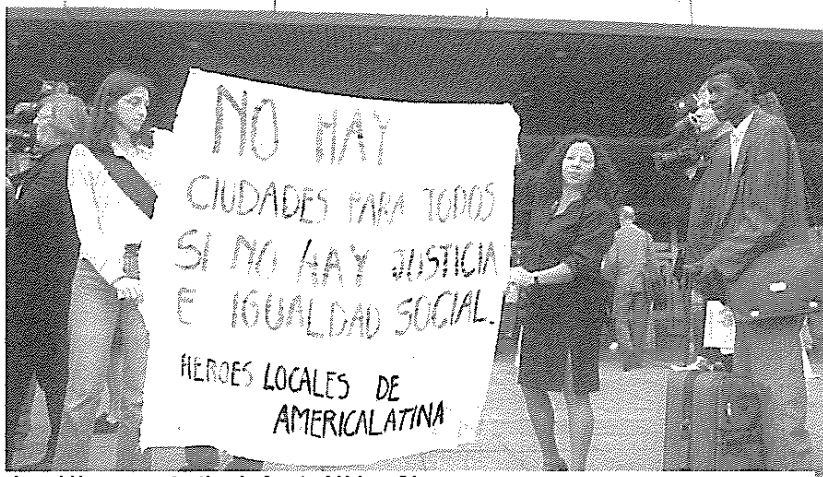 NO HAY
CIUDADES PARA TODOS
SI NO HAY JUSTICIA
E IGUALDAD SOCIAL.
HEROES LOCALES DE
AMERICALATINA